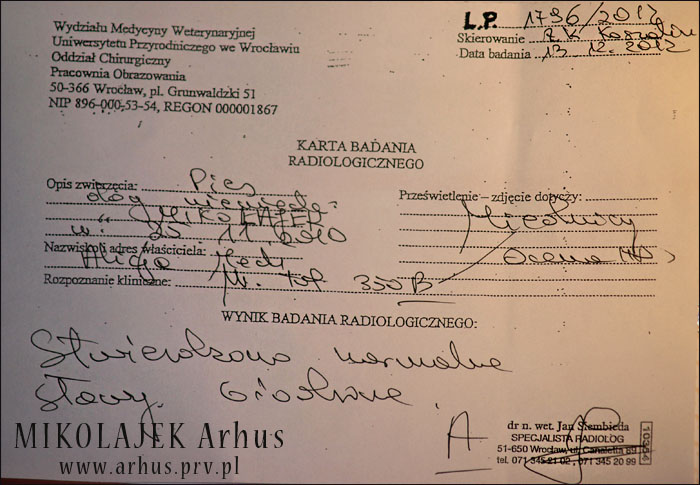 L.P. 1796/2012
Wydziału Medycyny Weterynaryjnej
Uniwersytetu Przyrodniczego we Wrocławiu
Oddział Chirurgiczny
Pracownia Obrazowania
50-366 Wrocław, pl. Grunwaldzki 51
NIP 896-000-53-54, REGON 000001867
Skierowanie
Data badania 13 12. 2012
KARTA BADANIA
RADIOLOGICZNEGO
Opis zwierzęcia: Pies
dog niemiecki
"MIKOŁAJEK
ur. 25 11. 2010
Nazwisko i adres właściciela:
Alicja
Rozpoznanie kliniczne: Nr. tat 350 B
Prześwietlenie – zdjęcie dotyczy:
Miednicy
Ocena HD
WYNIK BADANIA RADIOLOGICZNEGO:
Stwierdzono normalne
stawy biodrowe.
A
dr n. wet. Jan Siembieda
SPECJALISTA RADIOLOG
51-650 Wrocław, ul. Canaletta 69
tel. 071 345 21 02, 071 345 20 99
MIKOLAJEK Arhus
www.arhus.prv.pl